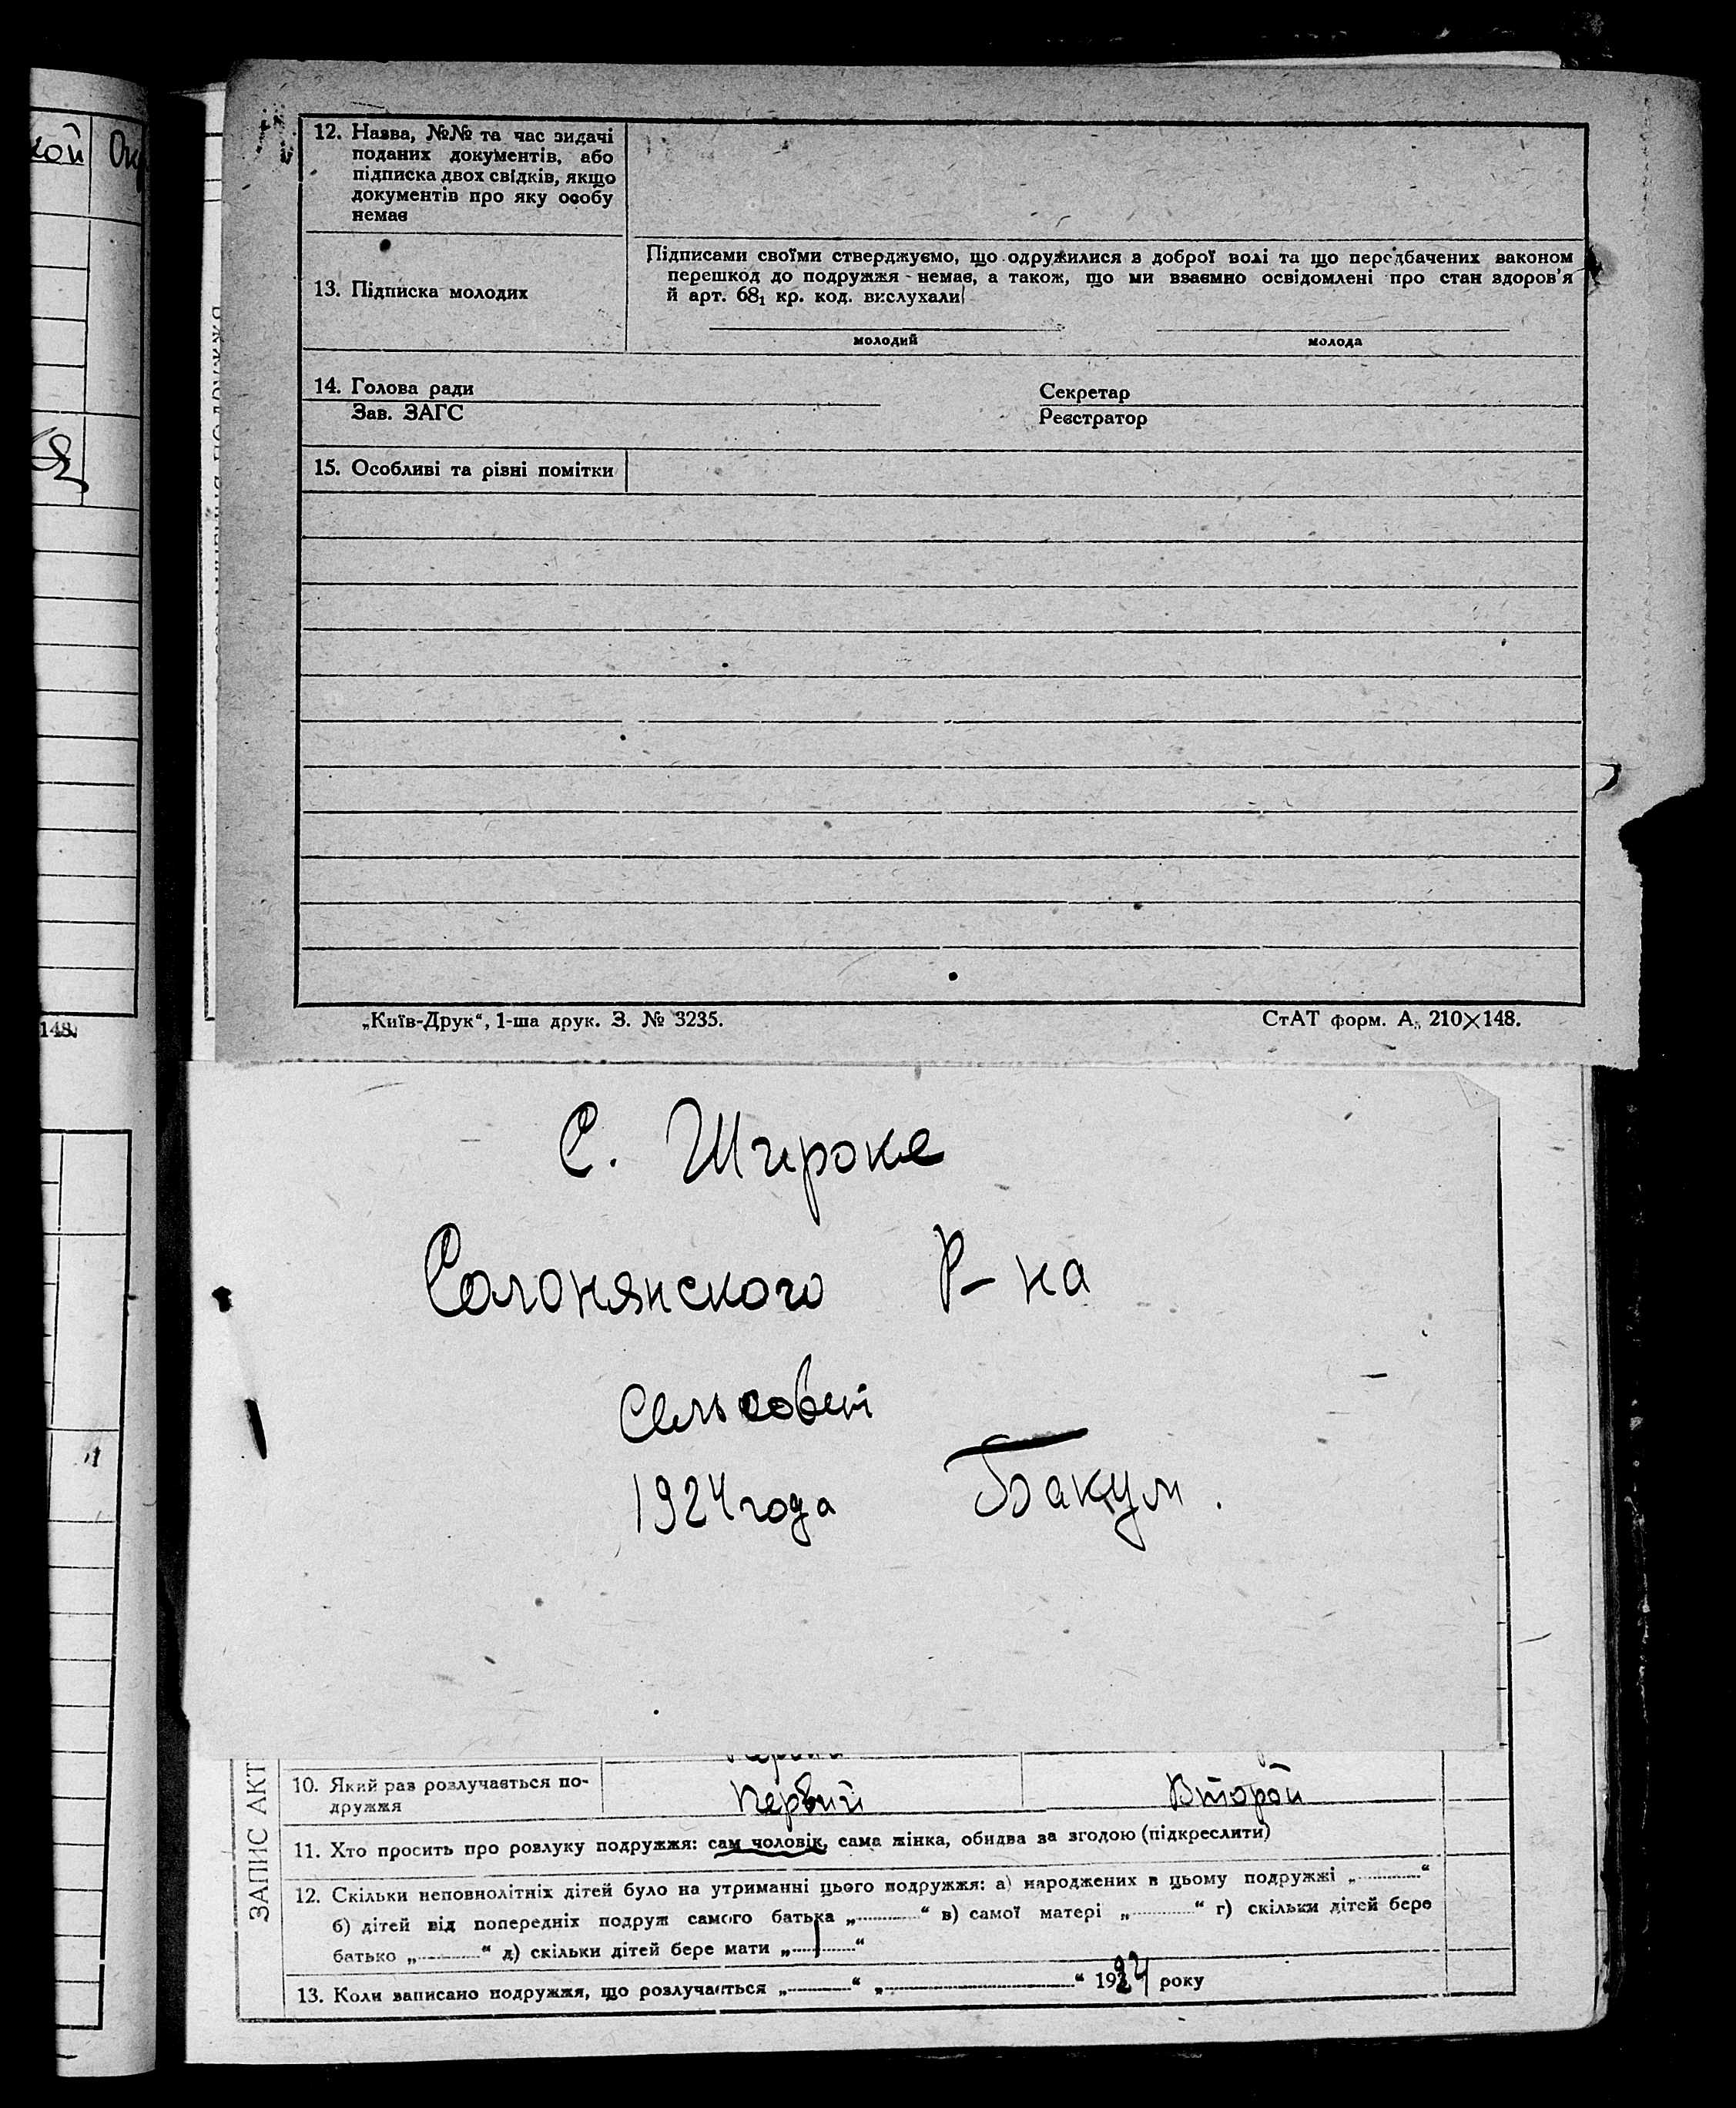 кой
148.
12. Назва, №№ та час видачі
поданих документів, або
підписка двох свідків, якщо
документів про яку особу
немає
13. Підписка молодих
Підписами своїми стверджуємо, що одружилися з доброї волі та що передбачених законом
перешкод до подружжя немає, а також, що ми взаємно освідомлені про стан здоров'я
й арт. 68₁ кр. код. вислухали
молодий молода
14. Голова ради Секретар
Зав. ЗАГС Реєстратор
15. Особливі та різні помітки
„Київ-Друк“, 1-ша друк. З. № 3235. СтАТ форм. А₅ 210×148.
С. Широке
Солонянского Р-на
Сельсовет
1924 года Бакум.
ЗАПИС АКТ
10. Який раз розлучається по-
дружжя
Первий Второй
11. Хто просить про розлуку подружжя: сам чоловік, сама жінка, обидва за згодою (підкреслити)
12. Скільки неповнолітніх дітей було на утриманні цього подружжя: а) народжених в цьому подружжі „............“
б) дітей від попередніх подруж самого батька „............“ в) самої матері „............“ г) скільки дітей бере
батько „............“ д) скільки дітей бере мати „.....1.....“
13. Коли записано подружжя, що розлучається „............“ „..............................“ 1924 року